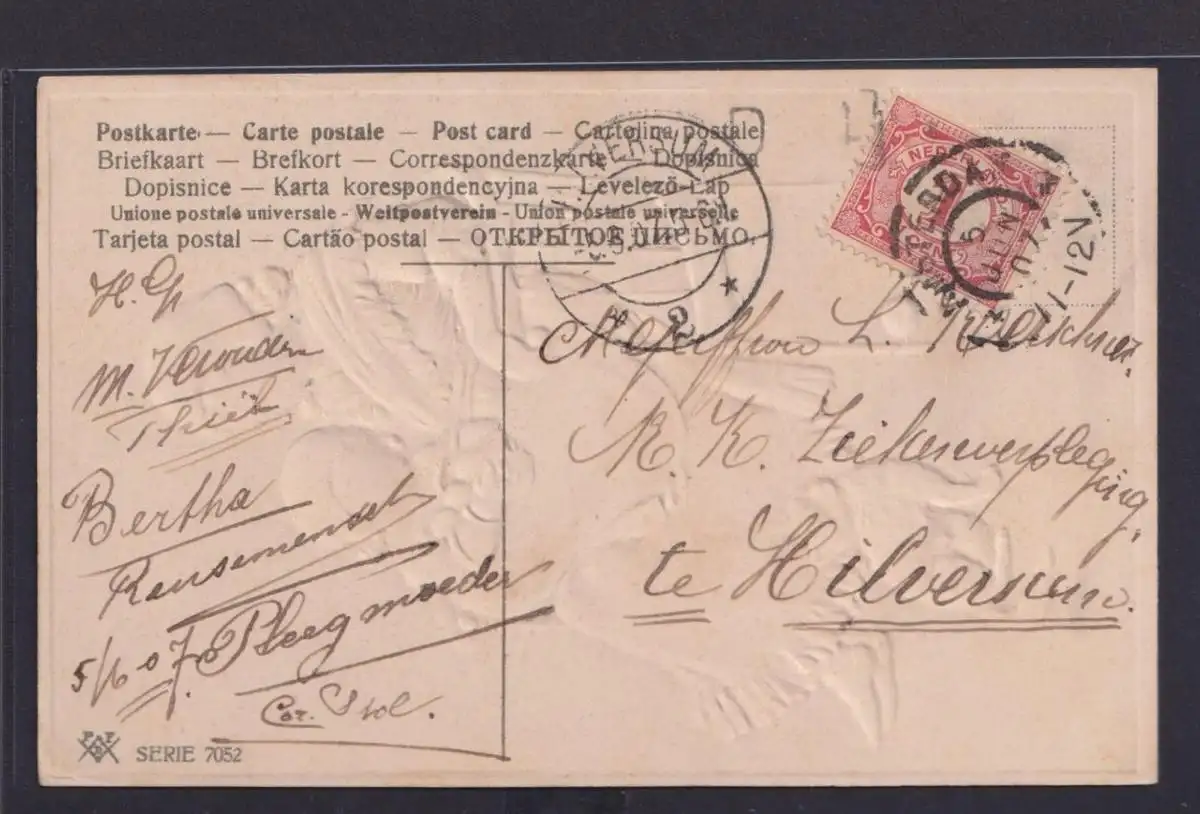 Postkarte — Carte postale — Post card — Cartolina postale
Briefkaart — Brefkort — Correspondenzkarte — Dopisnica
Dopisnice — Karta korespondencyjna — Levelező-Lap
Unione postale universale - Weltpostverein - Union postale universelle
Tarjeta postal — Cartão postal — ОТКРЫТОЕ ПИСЬМО.
HILVERSUM
2
NEDERLAND
1
CENT
AMSTERDAM
5 JUN 07
11-12V
Mejuffrouw L.
R. K. Ziekenverpleging,
te Hilversum.
M.
Bertha
5/6 07. Pleegmoeder
Cor.
PFB
SERIE 7052